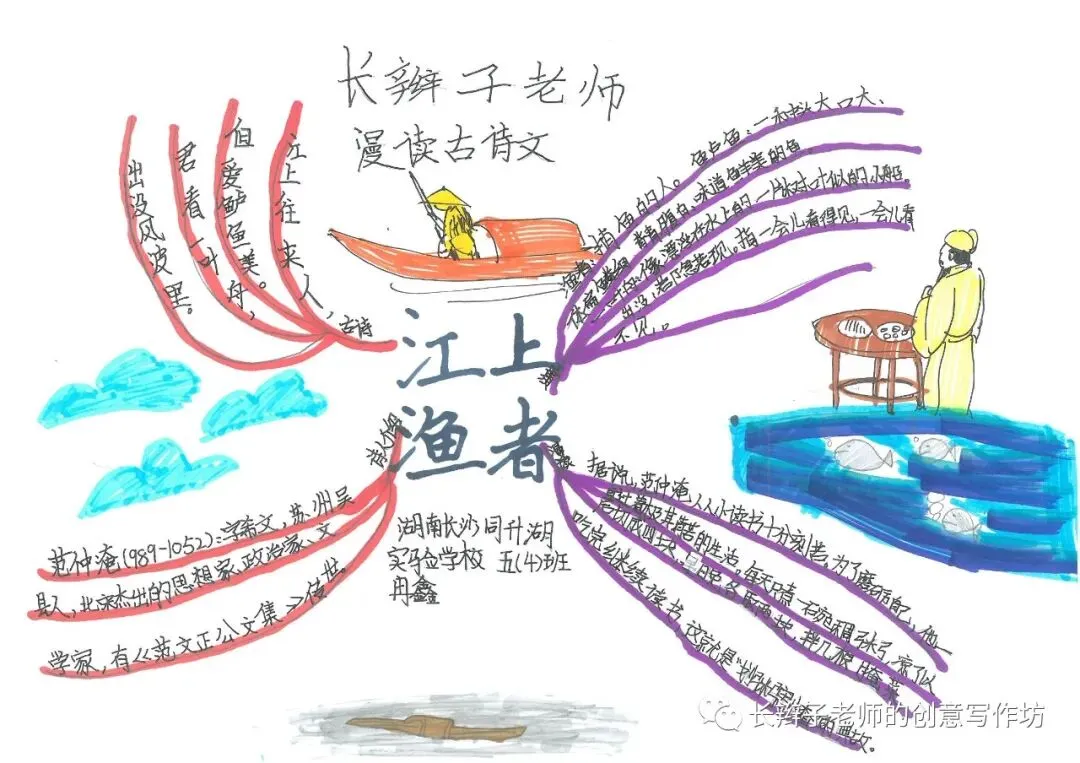 长辫子老师
漫读古诗文
江上往来人,
但爱鲈鱼美。
君看一叶舟,
出没风波里。
古诗
江上
渔者
渔者:捕鱼的人。鲈鱼:一种头大口大、
体扁鳞细、背青腹白、味道鲜美的鱼。
一叶舟:像漂浮在水上的一片树叶似的小船。
出没:若隐若现。指一会儿看得见,一会儿看
不见。
诗人介绍
范仲淹(989-1052):字希文,苏州吴
县人,北宋杰出的思想家、政治家、文
学家,有《范文正公文集》传世。
湖南长沙同升湖
实验学校 五(4)班
冉鑫
据说,范仲淹从小读书十分刻苦,为了磨砺自己,他一
的生活,每天只煮一
吃完继续读书,这就是
的典故。
长辫子老师的创意写作坊